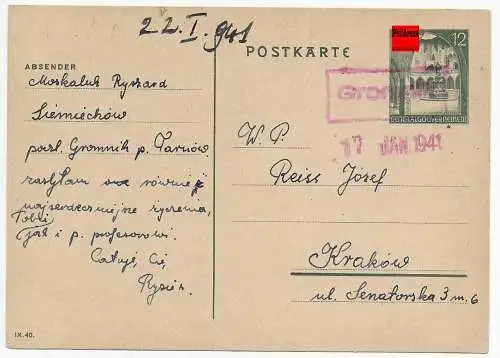 22.I.941
POSTKARTE
12
PHILArena
GENERALGOUVERNEMENT
ABSENDER
Moskaluk Ryszard
Siemiechów
poczt. Gromnik p. Tarnów
zasyłam również
najserdeczniejsze życzenia,
Tobie
jak i p. profesorowi.
Całuję Cię
Rysiek
Gromnik
17 JAN 1941
W. P.
Reiss Józef
Kraków
ul. Senatorska 3 m. 6
IX.40.